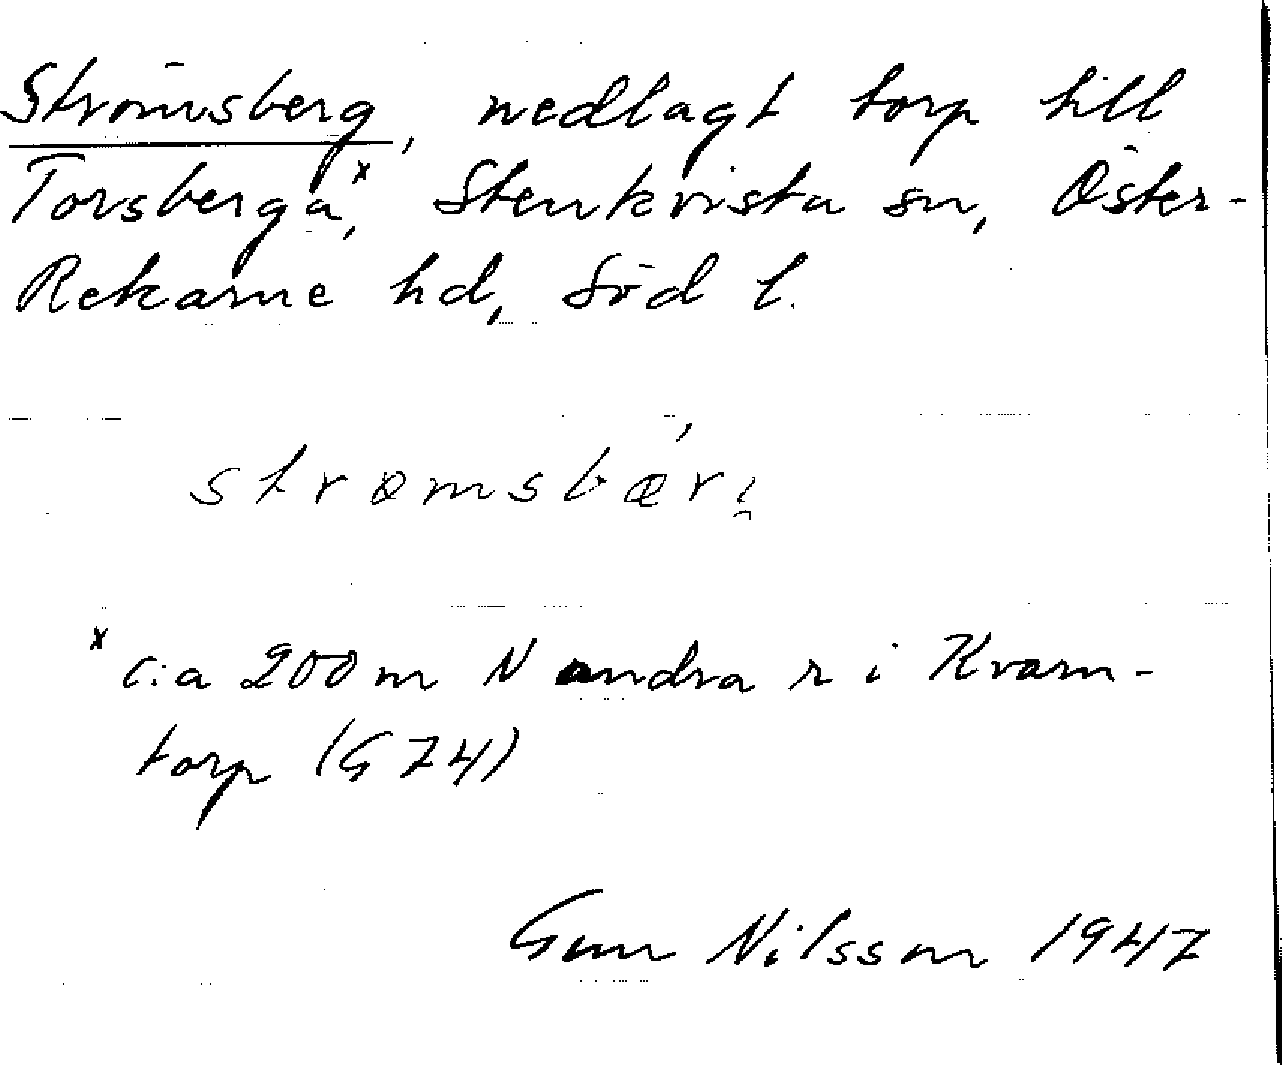 Strömsberg, nedlagt torp till
Torsberga,ˣ Stenkvista sn, Öster-
Rekarne hd, Söd l.
strømsbær
ˣ c:a 200 m N andra r i Kvarn-
torp (G 74)
Gun Nilsson 1947